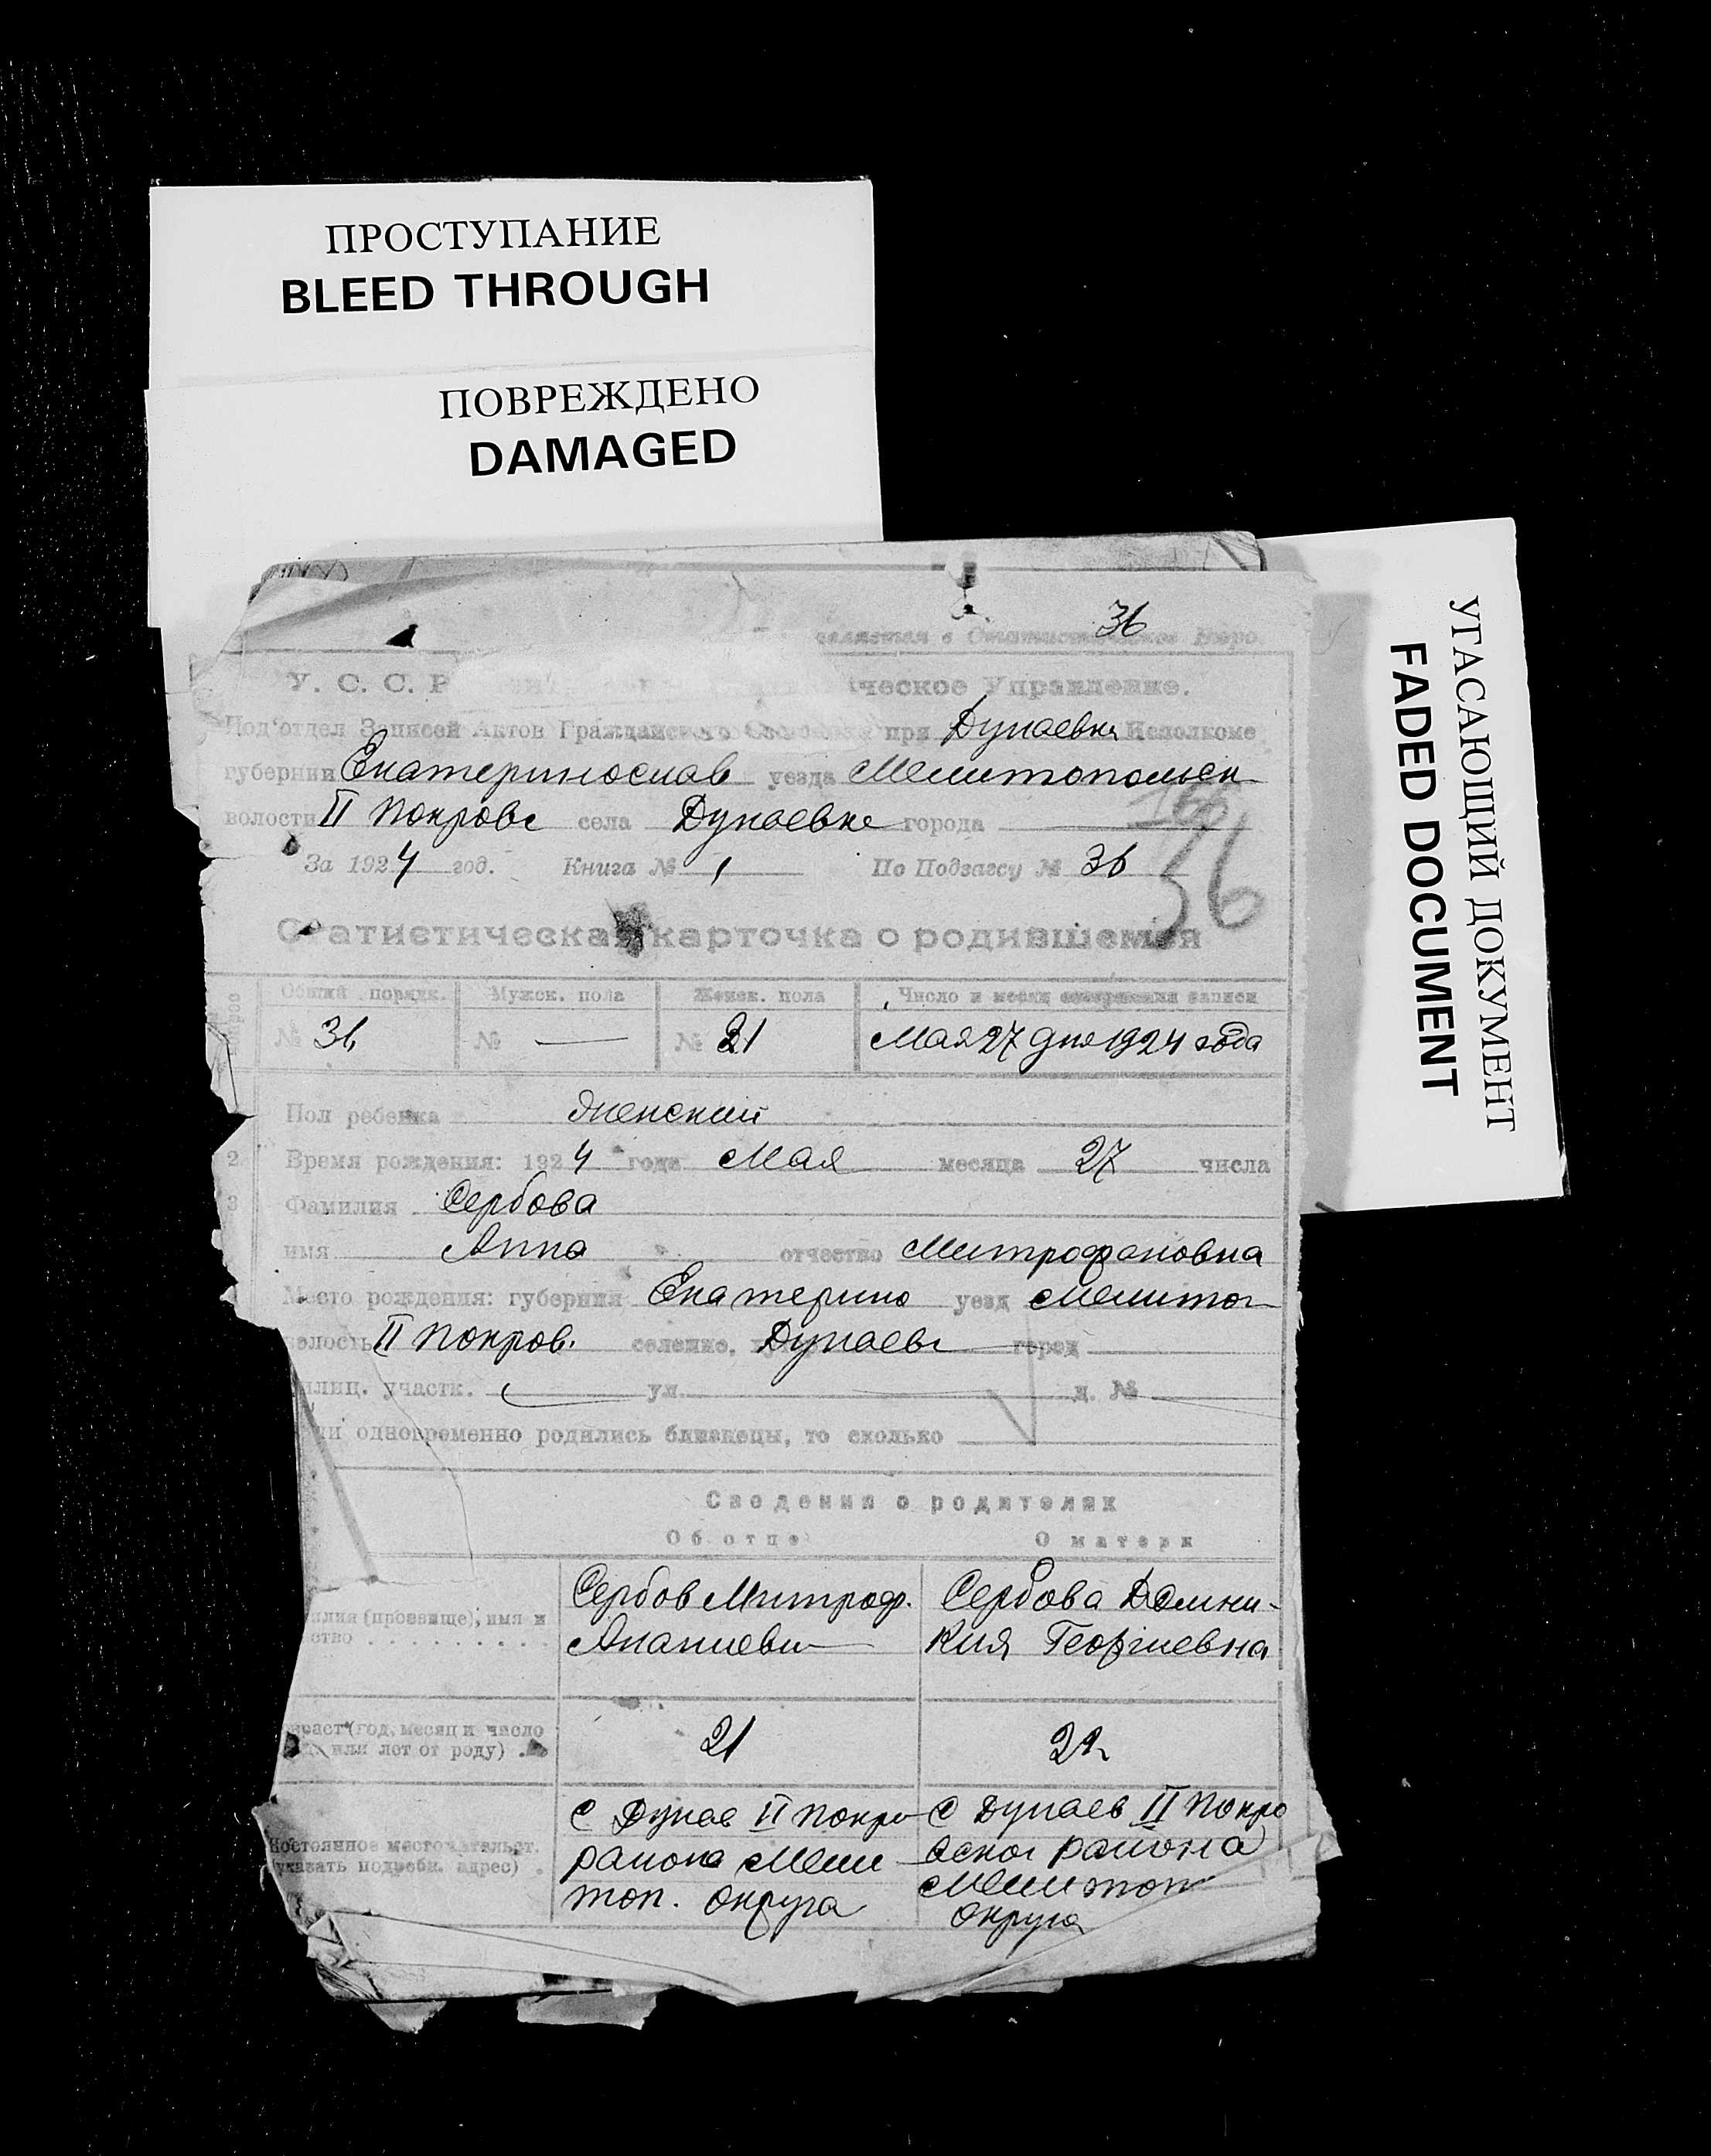 ПРОСТУПАНИЕ
BLEED THROUGH
ПОВРЕЖДЕНО
DAMAGED
УГАСАЮЩИЙ ДОКУМЕНТ
FADED DOCUMENT
36
в Статистическое Бюро.
У. С. С. Р ческое Управление.
Под'отдел Записей Актов Гражданского при Дунаевка Исполкоме
губернии Екатеринослав уезда Мелитопольск
волости II Покровс села Дунаевке города
За 1924 год. Книга № 1 По Подзагсу № 36
36
Статистическая карточка о родившемся
Общий порядк. Мужск. пола Женск. пола Число и месяц совершения записи
№ 36 № — № 21 Мая 27 дня 1924 года
Пол ребенка женский
2 Время рождения: 1924 года Мая месяца 27 числа
3 Фамилия Сербова
имя Анна отчество Митрофановна
Место рождения: губерния Екатерино уезд Мелитоп
волость II Покров. селение, Дунаевк город
милиц. участк. ул. д. №
ли одновременно родились близнецы, то сколько
Сведения о родителях
Об отце О матери
илия (прозвище), имя и
ство
Сербов Митроф.
Ананиеви
Сербова Домни-
кия Георгиевна
враст (год, месяц и число
или лет от роду) .
21
22
Постоянное местожительст.
(указать подробн. адрес) .
с Дунаев II Покро
района Мели
топ. округа
с Дунаев II Покро
вског района
Мелитоп
округа